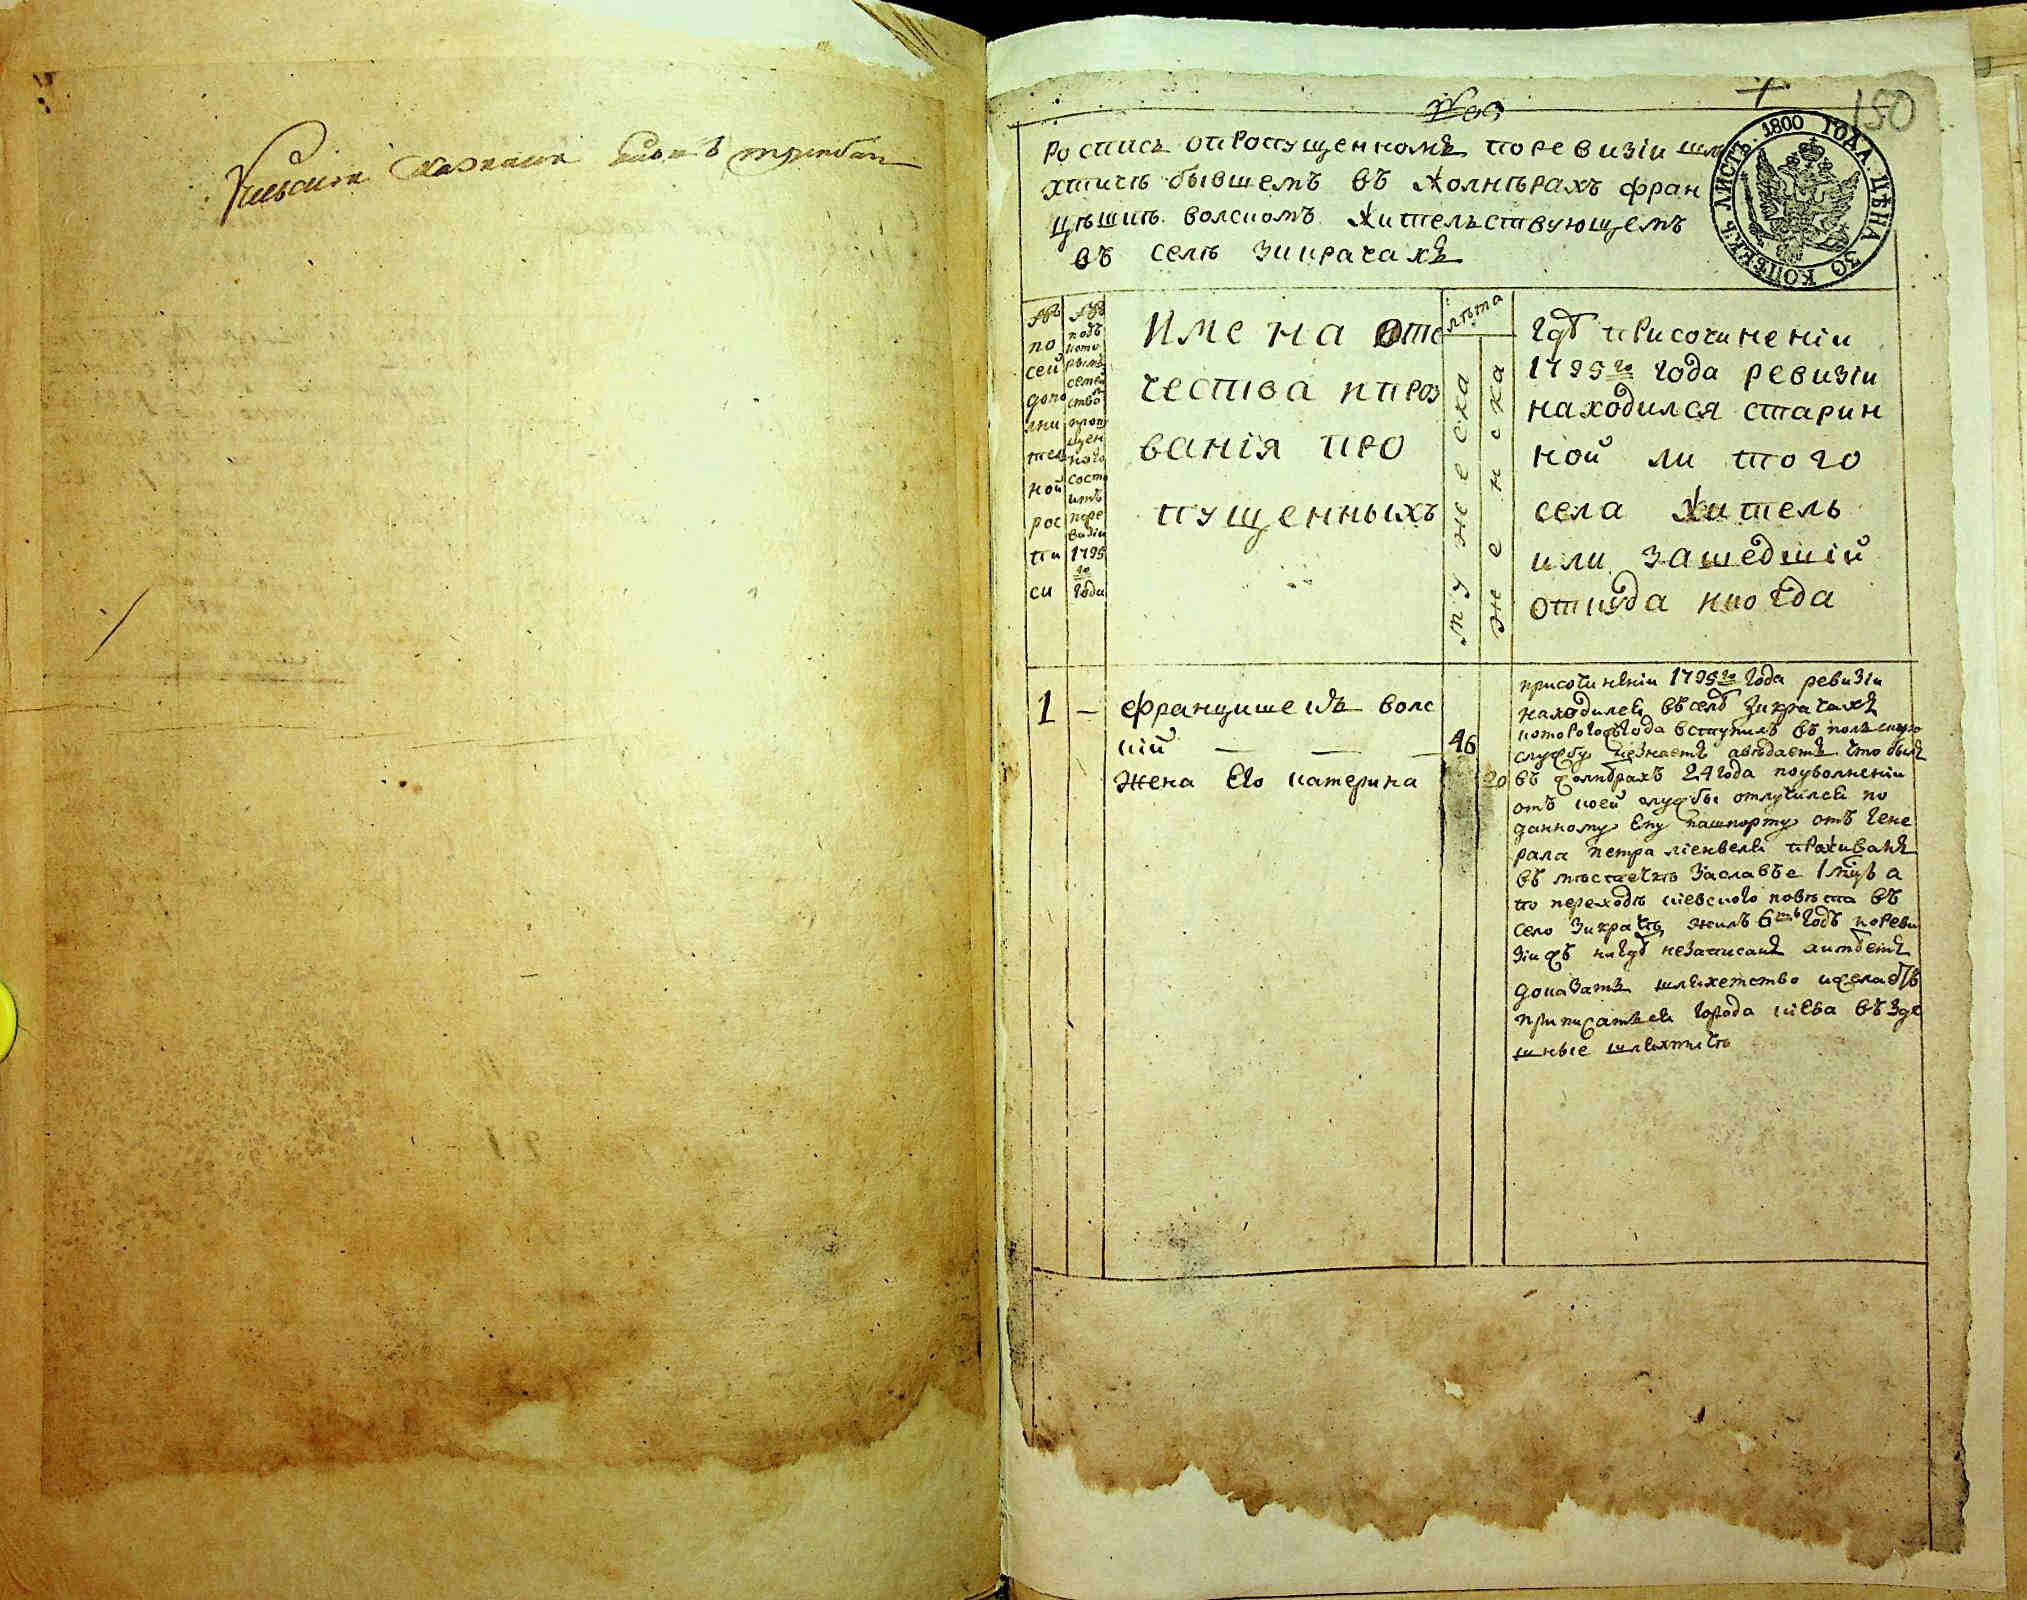 150
1800 ГОДА. ЦѢНА 30 КОПѢЕКЪ ЛИСТЪ.
Роспись опропущенномъ поревизіи шля
хтичѣ бывшемъ въ жолнѣрахъ фран
цѣшкѣ волскомъ жительствующемъ
въ селѣ зикрачахъ
№ по сей допо лни тел ной рос пи си
№ подъ кото рымъ семей ство пропу щен ного состо итъ поре визіи 1795 го года
Имена отe
чества ипроз
ванія про
пущенныхъ
лѣта
мужеска
женска
гдѣ присочиненіи
1795го года ревизіи
находился старин
ной ли того
села житель
или зашедшій
откуда икогда
1 — францишекъ волс
кій — — — 46
жена его катерина 20
присочиненіи 1795го года ревизіи
находился вселѣ Зикрачахъ
которогоѣ года вступилъ въ полскую
службу незнаетъ авѣдаетъ что былъ
въ жолнѣрахъ 24 года поуволненіи
отъ коей службы отлучился по
данному ему пашпорту отъ гене
рала петра проживалъ
въ мѣстечкѣ Заславѣе 1 мцъ а
по переходѣ кіевского повѣта въ
село Зикрачѣ жилъ 6 годъ пореви
зіи нигдѣ незаписанъ аимѣетъ
доказать шляхетство ижелаетъ
приписаться города кіева въ зде
шные шляхтичѣ